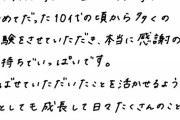 めてだった10代の頃から多くの
験をさせていただき、本当に感謝の
持ちでいっぱいです。
ばせていただいたことを活かせるよう
としても成長して日々たくさんのこと